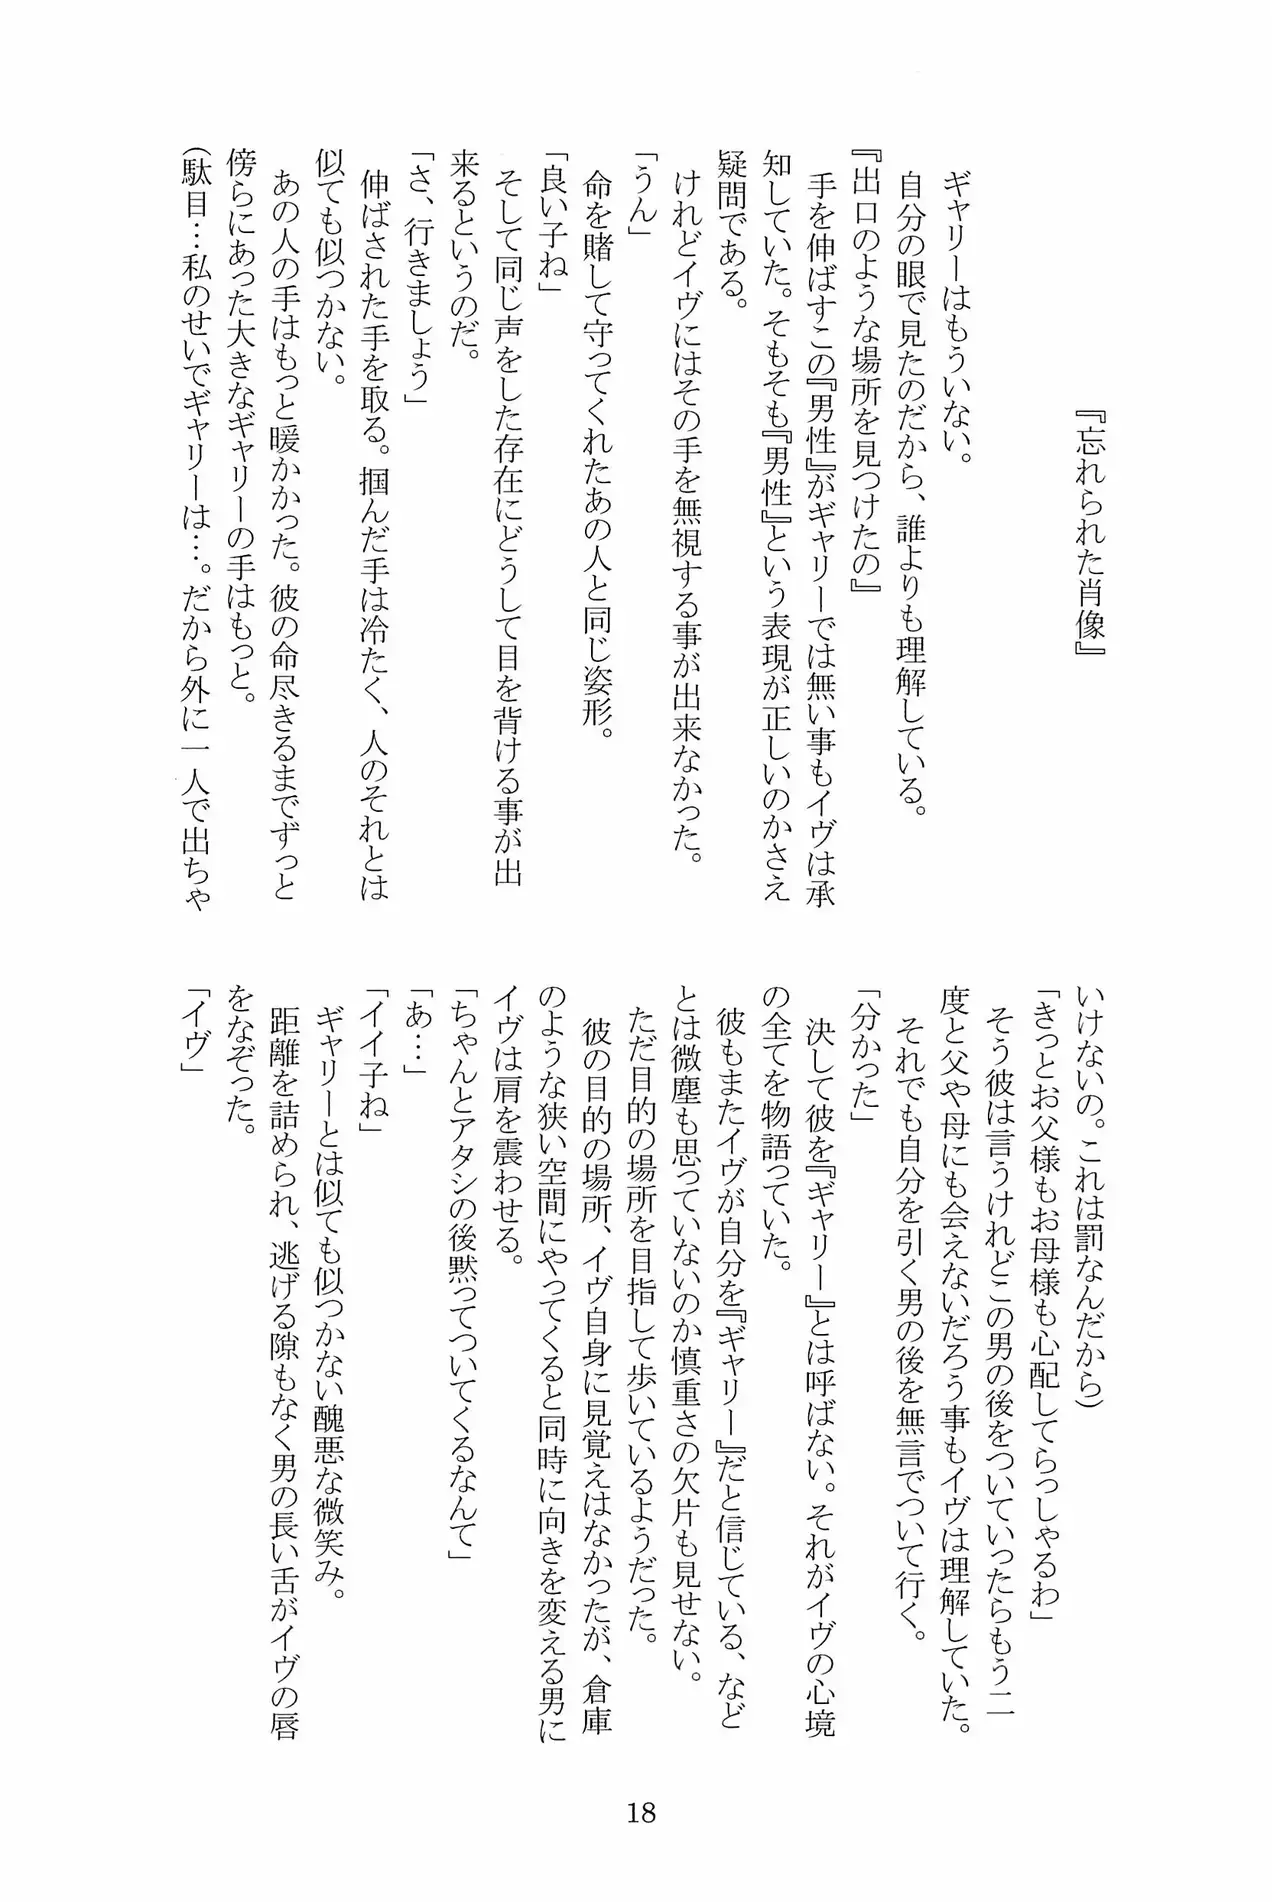 『忘れられた肖像』
ギャリーはもういない。
自分の眼で見たのだから、誰よりも理解している。
『出口のような場所を見つけたの』
手を伸ばすこの『男性』がギャリーでは無い事もイヴは承
知していた。そもそも『男性』という表現が正しいのかさえ
疑問である。
けれどイヴにはその手を無視する事が出来なかった。
「うん」
命を賭して守ってくれたあの人と同じ姿形。
「良い子ね」
そして同じ声をした存在にどうして目を背ける事が出
来るというのだ。
「さ、行きましょう」
伸ばされた手を取る。掴んだ手は冷たく、人のそれとは
似ても似つかない。
あの人の手はもっと暖かかった。彼の命尽きるまでずっと
傍らにあった大きなギャリーの手はもっと。
(駄目…私のせいでギャリーは…。だから外に一人で出ちゃ
いけないの。これは罰なんだから)
「きっとお父様もお母様も心配してらっしゃるわ」
そう彼は言うけれどこの男の後をついていったらもう二
度と父や母にも会えないだろう事もイヴは理解していた。
それでも自分を引く男の後を無言でついて行く。
「分かった」
決して彼を『ギャリー』とは呼ばない。それがイヴの心境
の全てを物語っていた。
彼もまたイヴが自分を『ギャリー』だと信じている、など
とは微塵も思っていないのか慎重さの欠片も見せない。
ただ目的の場所を目指して歩いているようだった。
彼の目的の場所、イヴ自身に見覚えはなかったが、倉庫
のような狭い空間にやってくると同時に向きを変える男に
イヴは肩を震わせる。
「ちゃんとアタシの後黙ってついてくるなんて」
「あ…」
「イイ子ね」
ギャリーとは似ても似つかない醜悪な微笑み。
距離を詰められ、逃げる隙もなく男の長い舌がイヴの唇
をなぞった。
「イヴ」
18